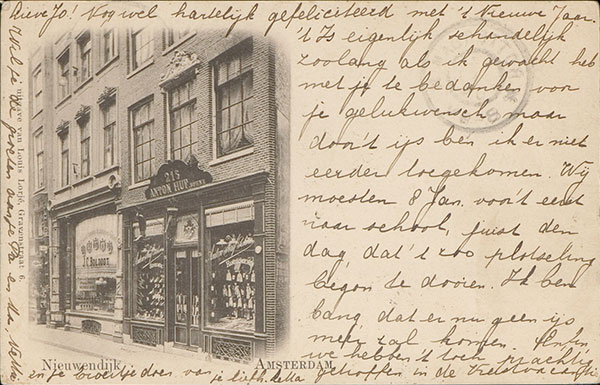 Lieve Jo! Nog wel hartelijk gefeliciteerd met 't Nieuwe Jaar.
't Is eigenlijk schandelijk
zoolang als ik gewacht heb
met je te bedanken voor
je gelukwensch maar
door 't ijs ben ik er niet
eerder toegekomen. Wij
moesten 8 Jan. voor 't eerst
naar school, juist den
dag, dat 't zoo plotseling
begon te dooien. Ik ben
bang dat er nu geen ijs
meer zal komen. Enfin
we hebben 't toch prachtig
getroffen in de Kerstvacantie
Wil je de groeten aan je Pa en Ma,
en je broertje doen van je liefh.
uitgave van Louis Lorjé, Gravenstraat 6.
215
ANTON HUF
J.C. BOLDOOT
Nieuwendijk
AMSTERDAM.